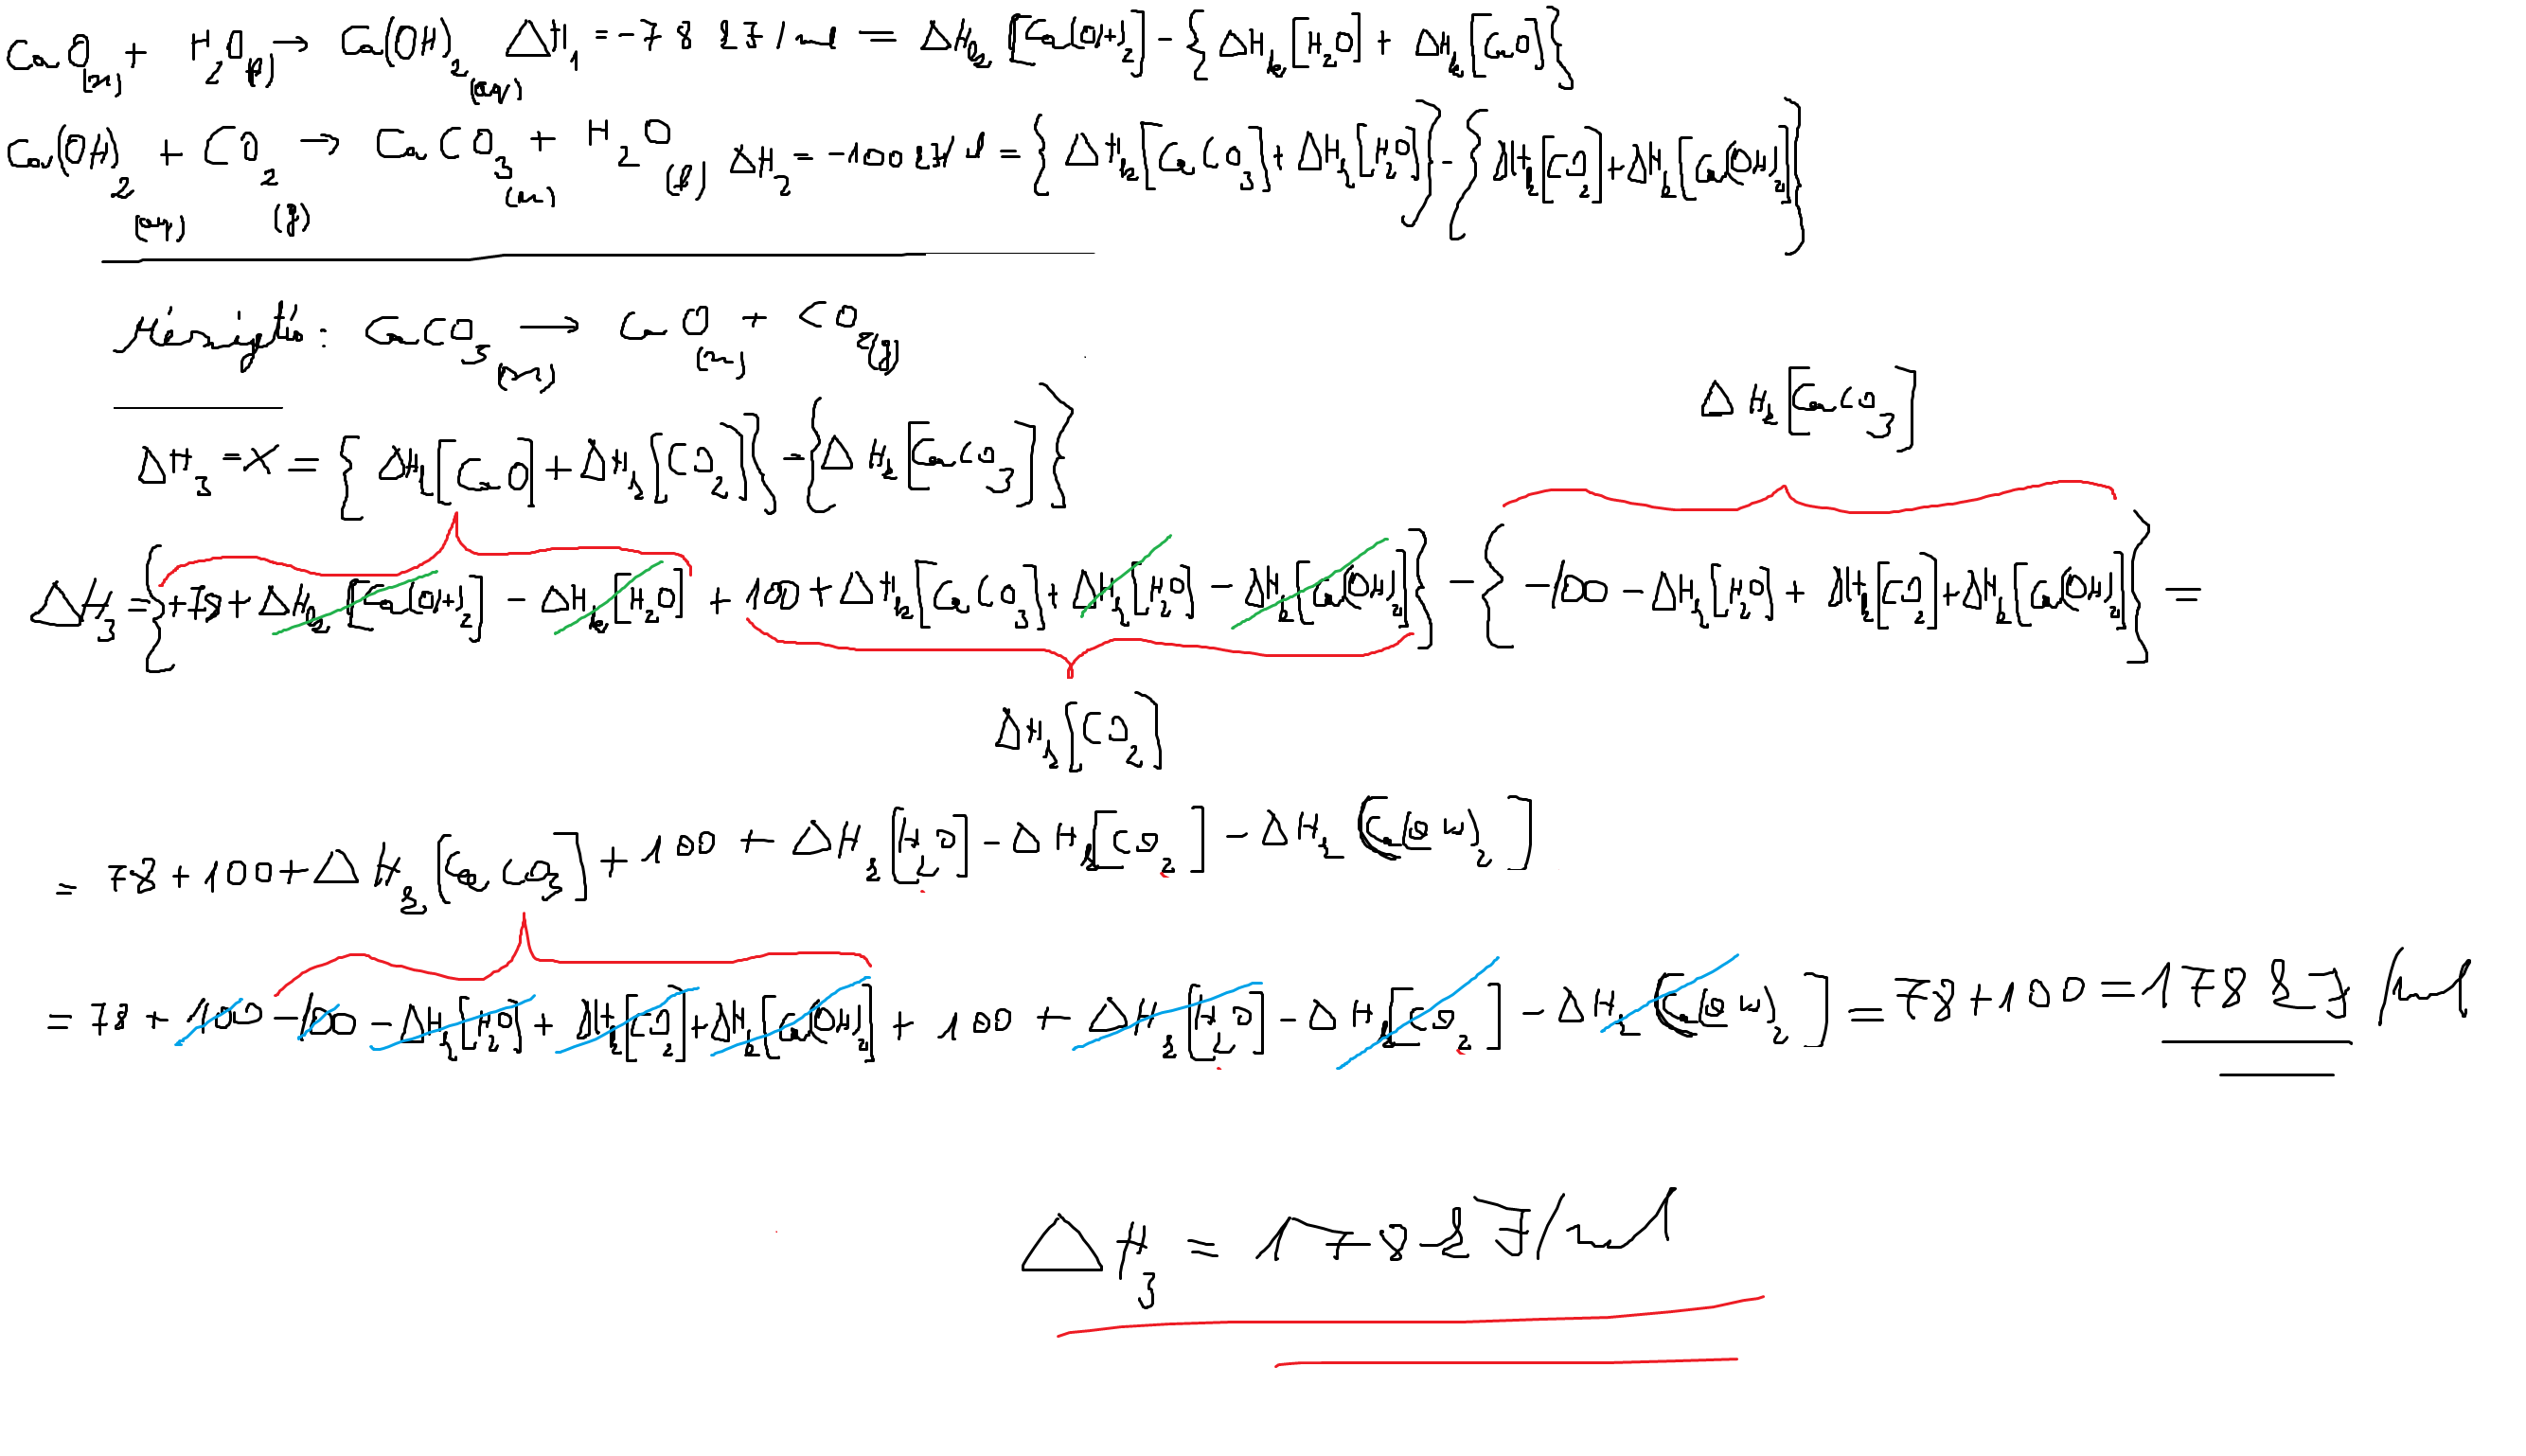 CaO(sz) + H2O(f) → Ca(OH)2(aq) ΔH1 = -78 kJ/mol = ΔHk [Ca(OH)2] - {ΔHk [H2O] + ΔHk [CaO]}
Ca(OH)2(aq) + CO2(g) → CaCO3(sz) + H2O(f) ΔH2 = -100 kJ/mol = {ΔHk [CaCO3] + ΔHk [H2O]} - {ΔHk [CO2] + ΔHk [Ca(OH)2]}
Mészégetés: CaCO3(sz) → CaO(sz) + CO2(g)
ΔHk [CaCO3]
ΔH3 = X = {ΔHk [CaO] + ΔHk [CO2]} - {ΔHk [CaCO3]}
ΔH3 = {+78 + ΔHk [Ca(OH)2] - ΔHk [H2O] + 100 + ΔHk [CaCO3] + ΔHk [H2O] - ΔHk [Ca(OH)2]} - {-100 - ΔHk [H2O] + ΔHk [CO2] + ΔHk [Ca(OH)2]} =
ΔHk [CO2]
= 78 + 100 + ΔHk [CaCO3] + 100 + ΔHk [H2O] - ΔHk [CO2] - ΔHk [Ca(OH)2]
= 78 + 100 - 100 - ΔHk [H2O] + ΔHk [CO2] + ΔHk [Ca(OH)2] + 100 + ΔHk [H2O] - ΔHk [CO2] - ΔHk [Ca(OH)2] = 78 + 100 = 178 kJ/mol
ΔH3 = 178 kJ/mol